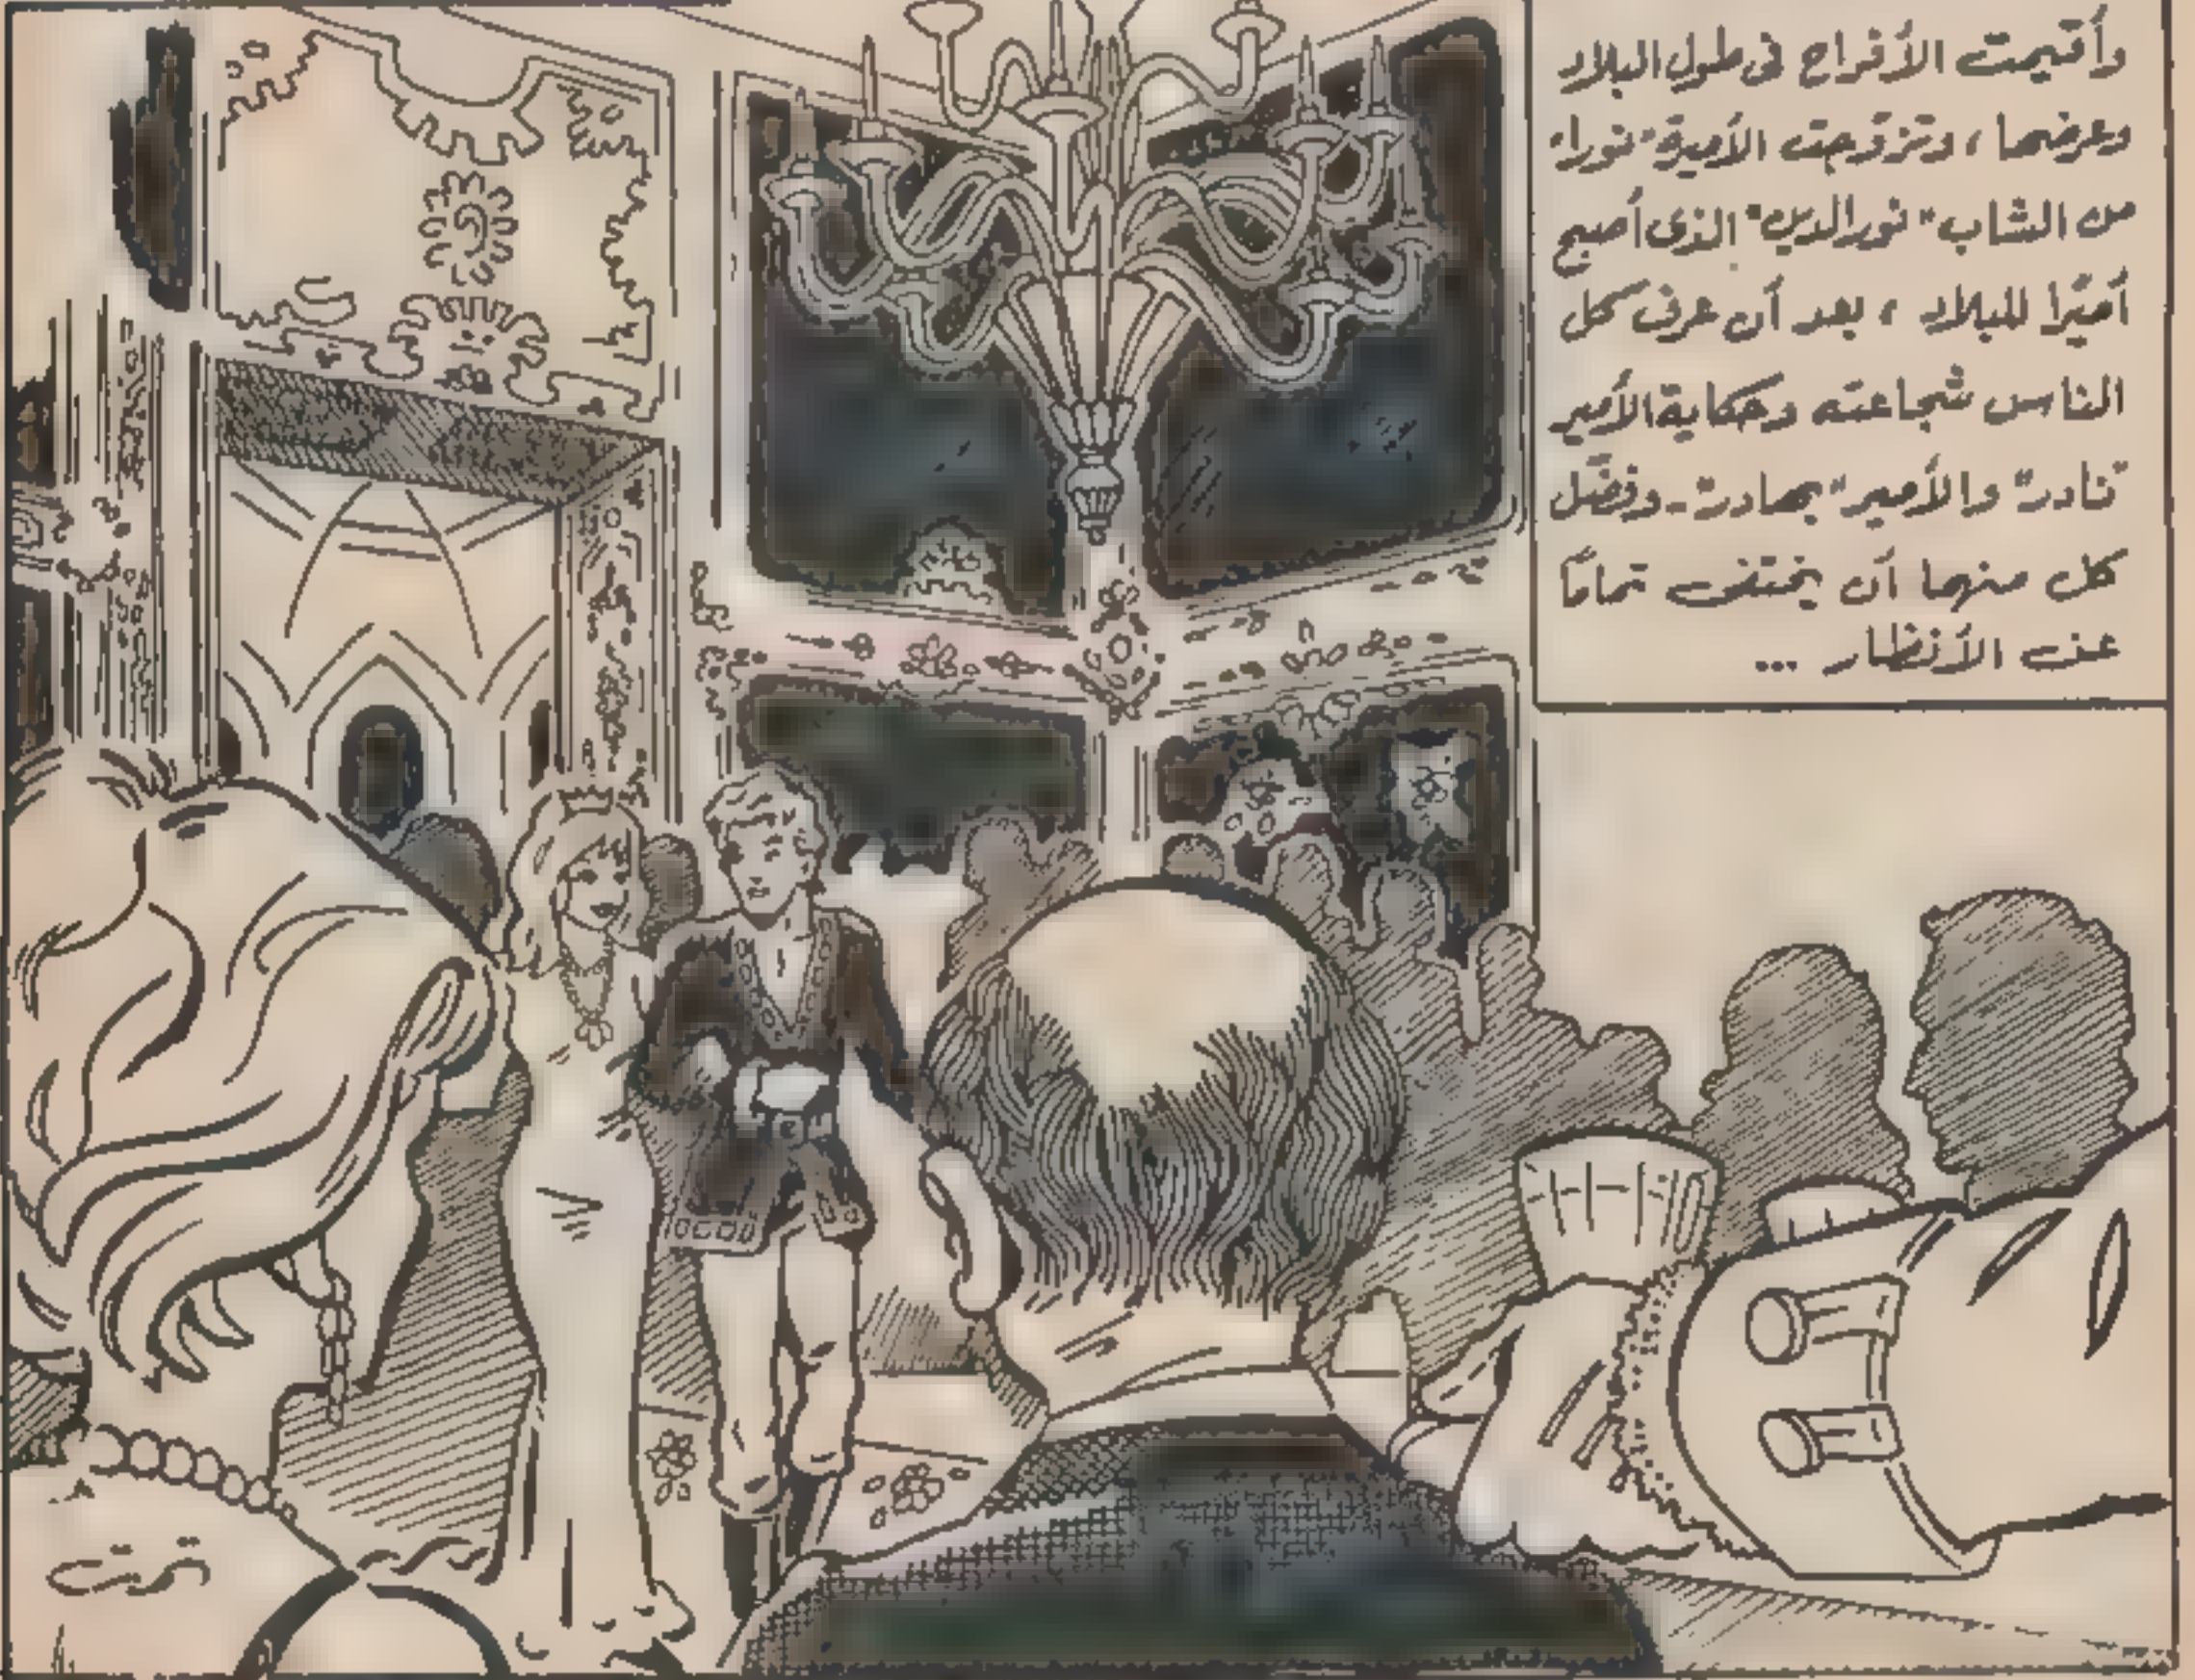 وأقيمت الأفراح فى طول البلاد
وعرضها ، وتزوجت الأميرة "نورا"
من الشاب "نور الدين" الذى أصبح
أميرًا للبلاد ، بعد أن عرف كل
الناس شجاعته وحكاية الأمير
"نادر" والأمير "بهادر" - وفضّل
كل منهما أن يختفى تمامًا
عن الأنظار ...
تمت